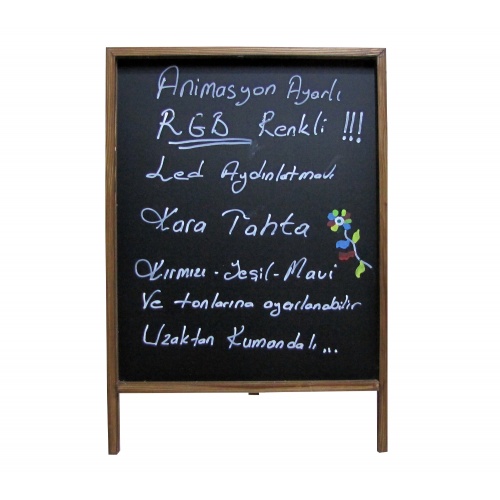 Animasyon Ayarlı
RGB Renkli !!!
Led Aydınlatmavi
Kara Tahta
Kırmızı - Yeşil - Mavi
Ve tonlarına ayarlanabilir
Uzaktan Kumandalı...